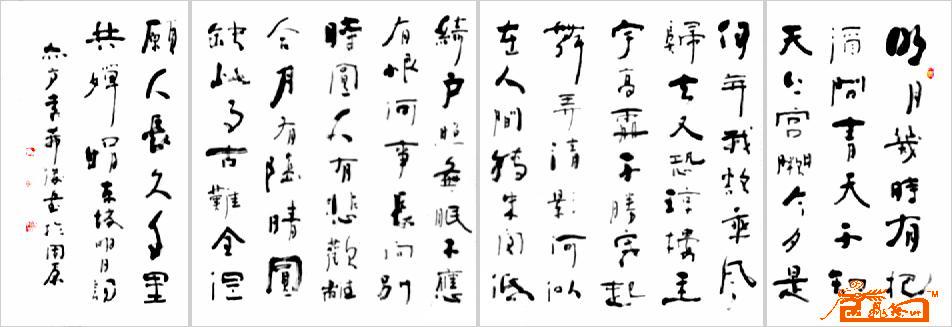 明月幾時有把
酒問青天不知
天上宮闕今夕是
何年我欲乘風
歸去又恐瓊樓玉
宇高處不勝寒起
舞弄清影何似
在人間轉朱閣低
綺戶照無眠不應
有恨何事長向別
時圓人有悲歡離
合月有陰晴圓
缺此事古難全但
願人長久千里
共嬋娟東坡明月詞